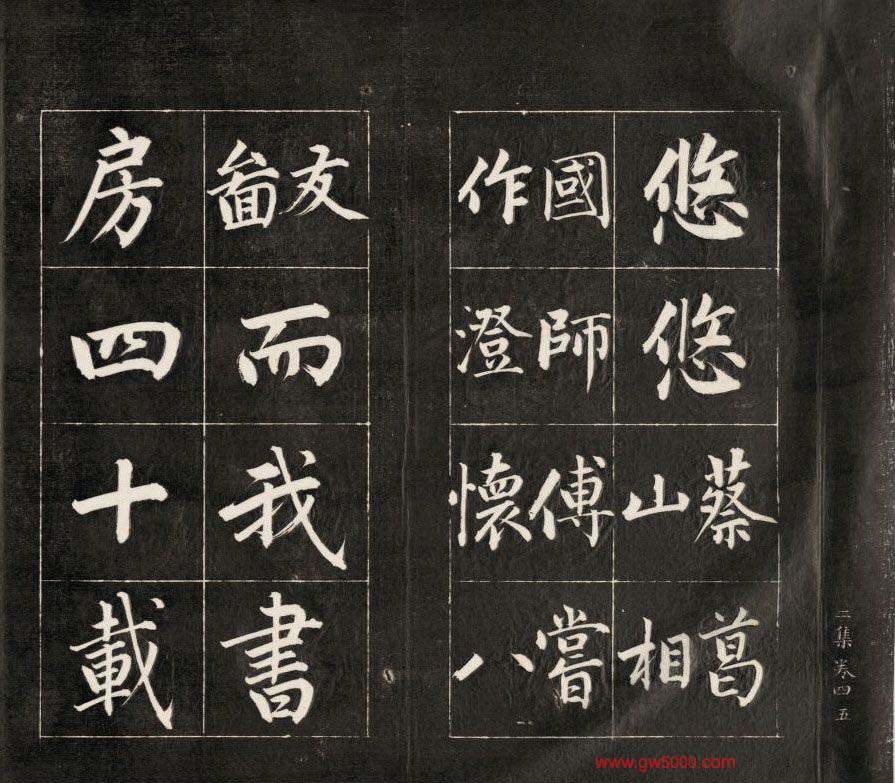 悠悠蔡葛山相
國師傅嘗作澄懷八
友啚而我書
房四十載
二集 卷四 五
www.gw5000.com